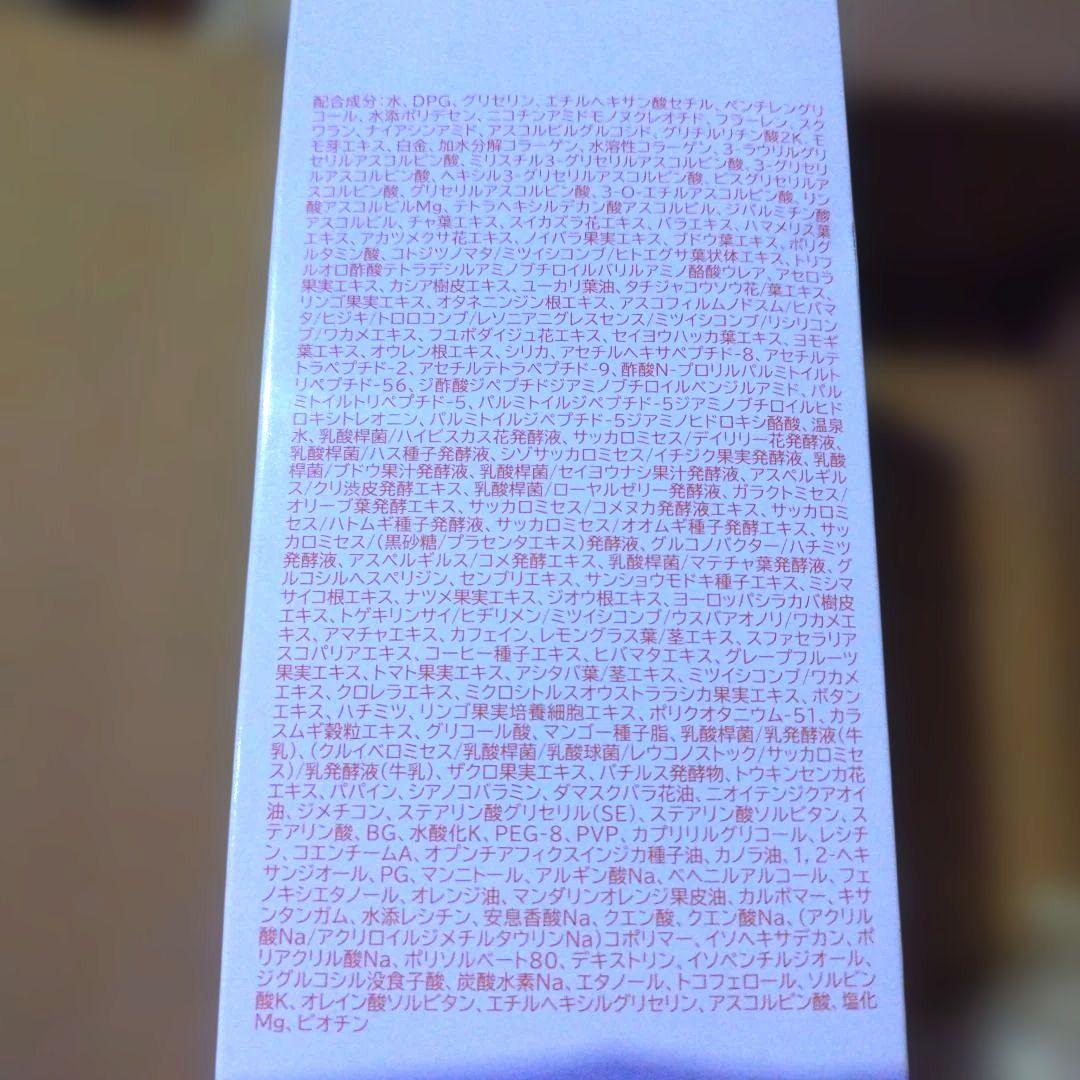 配合成分:水、DPG、グリセリン、エチルヘキサン酸セチル、ペンチレングリ
コール、水添ポリデセン、ニコチンアミドモノヌクレオチド、フラーレン、スク
ワラン、ナイアシンアミド、アスコルビルグルコシド、グリチルリチン酸2K、モ
モ芽エキス、白金、加水分解コラーゲン、水溶性コラーゲン、3-ラウリルグリ
セリルアスコルビン酸、ミリスチル3-グリセリルアスコルビン酸、3-グリセリ
ルアスコルビン酸、ヘキシル3-グリセリルアスコルビン酸、ビスグリセリルア
スコルビン酸、グリセリルアスコルビン酸、3-O-エチルアスコルビン酸、リン
酸アスコルビルMg、テトラヘキシルデカン酸アスコルビル、ジパルミチン酸
アスコルビル、チャ葉エキス、スイカズラ花エキス、バラエキス、ハマメリス葉
エキス、アカツメクサ花エキス、ノイバラ果実エキス、ブドウ葉エキス、ポリグ
ルタミン酸、コトジツノマタ/ミツイシコンブ/ヒトエグサ葉状体エキス、トリフ
ルオロ酢酸テトラデシルアミノブチロイルバリルアミノ酪酸ウレア、アセロラ
果実エキス、カシア樹皮エキス、ユーカリ葉油、タチジャコウソウ花/葉エキス、
リンゴ果実エキス、オタネニンジン根エキス、アスコフィルムノドスム/ヒバマ
タ/ヒジキ/トロロコンブ/レソニアニグレスセンス/ミツイシコンブ/リシリコン
ブ/ワカメエキス、フユボダイジュ花エキス、セイヨウハッカ葉エキス、ヨモギ
葉エキス、オウレン根エキス、シリカ、アセチルヘキサペプチド-8、アセチルテ
トラペプチド-2、アセチルテトラペプチド-9、酢酸N-プロリルパルミトイルト
リペプチド-56、ジ酢酸ジペプチドジアミノブチロイルベンジルアミド、パル
ミトイルトリペプチド-5、パルミトイルジペプチド-5ジアミノブチロイルヒド
ロキシトレオニン、パルミトイルジペプチド-5ジアミノヒドロキシ酪酸、温泉
水、乳酸桿菌/ハイビスカス花発酵液、サッカロミセス/デイリリー花発酵液、
乳酸桿菌/ハス種子発酵液、シゾサッカロミセス/イチジク果実発酵液、乳酸
桿菌/ブドウ果汁発酵液、乳酸桿菌/セイヨウナシ果汁発酵液、アスペルギル
ス/クリ渋皮発酵エキス、乳酸桿菌/ローヤルゼリー発酵液、ガラクトミセス/
オリーブ葉発酵エキス、サッカロミセス/コメヌカ発酵液エキス、サッカロミ
セス/ハトムギ種子発酵液、サッカロミセス/オオムギ種子発酵エキス、サッ
カロミセス/(黒砂糖/プラセンタエキス)発酵液、グルコノバクター/ハチミツ
発酵液、アスペルギルス/コメ発酵エキス、乳酸桿菌/マテチャ葉発酵液、グ
ルコシルヘスペリジン、センブリエキス、サンショウモドキ種子エキス、ミシマ
サイコ根エキス、ナツメ果実エキス、ジオウ根エキス、ヨーロッパシラカバ樹皮
エキス、トゲキリンサイ/ヒヂリメン/ミツイシコンブ/ウスバアオノリ/ワカメエ
キス、アマチャエキス、カフェイン、レモングラス葉/茎エキス、スファセラリア
スコパリアエキス、コーヒー種子エキス、ヒバマタエキス、グレープフルーツ
果実エキス、トマト果実エキス、アシタバ葉/茎エキス、ミツイシコンブ/ワカメ
エキス、クロレラエキス、ミクロシトルスオウストララシカ果実エキス、ボタン
エキス、ハチミツ、リンゴ果実培養細胞エキス、ポリクオタニウム-51、カラ
スムギ穀粒エキス、グリコール酸、マンゴー種子脂、乳酸桿菌/乳発酵液(牛
乳)、(クルイベロミセス/乳酸桿菌/乳酸球菌/レウコノストック/サッカロミセ
ス)/乳発酵液(牛乳)、ザクロ果実エキス、バチルス発酵物、トウキンセンカ花
エキス、パパイン、シアノコバラミン、ダマスクバラ花油、ニオイテンジクアオイ
油、ジメチコン、ステアリン酸グリセリル(SE)、ステアリン酸ソルビタン、ス
テアリン酸、BG、水酸化K、PEG-8、PVP、カプリリルグリコール、レシチ
ン、コエンチームA、オプンチアフィクスインジカ種子油、カノラ油、1,2-ヘキ
サンジオール、PG、マンニトール、アルギン酸Na、ベヘニルアルコール、フェ
ノキシエタノール、オレンジ油、マンダリンオレンジ果皮油、カルボマー、キサ
ンタンガム、水添レシチン、安息香酸Na、クエン酸、クエン酸Na、(アクリル
酸Na/アクリロイルジメチルタウリンNa)コポリマー、イソヘキサデカン、ポ
リアクリル酸Na、ポリソルベート80、デキストリン、イソペンチルジオール、
ジグルコシル没食子酸、炭酸水素Na、エタノール、トコフェロール、ソルビン
酸K、オレイン酸ソルビタン、エチルヘキシルグリセリン、アスコルビン酸、塩化
Mg、ビオチン